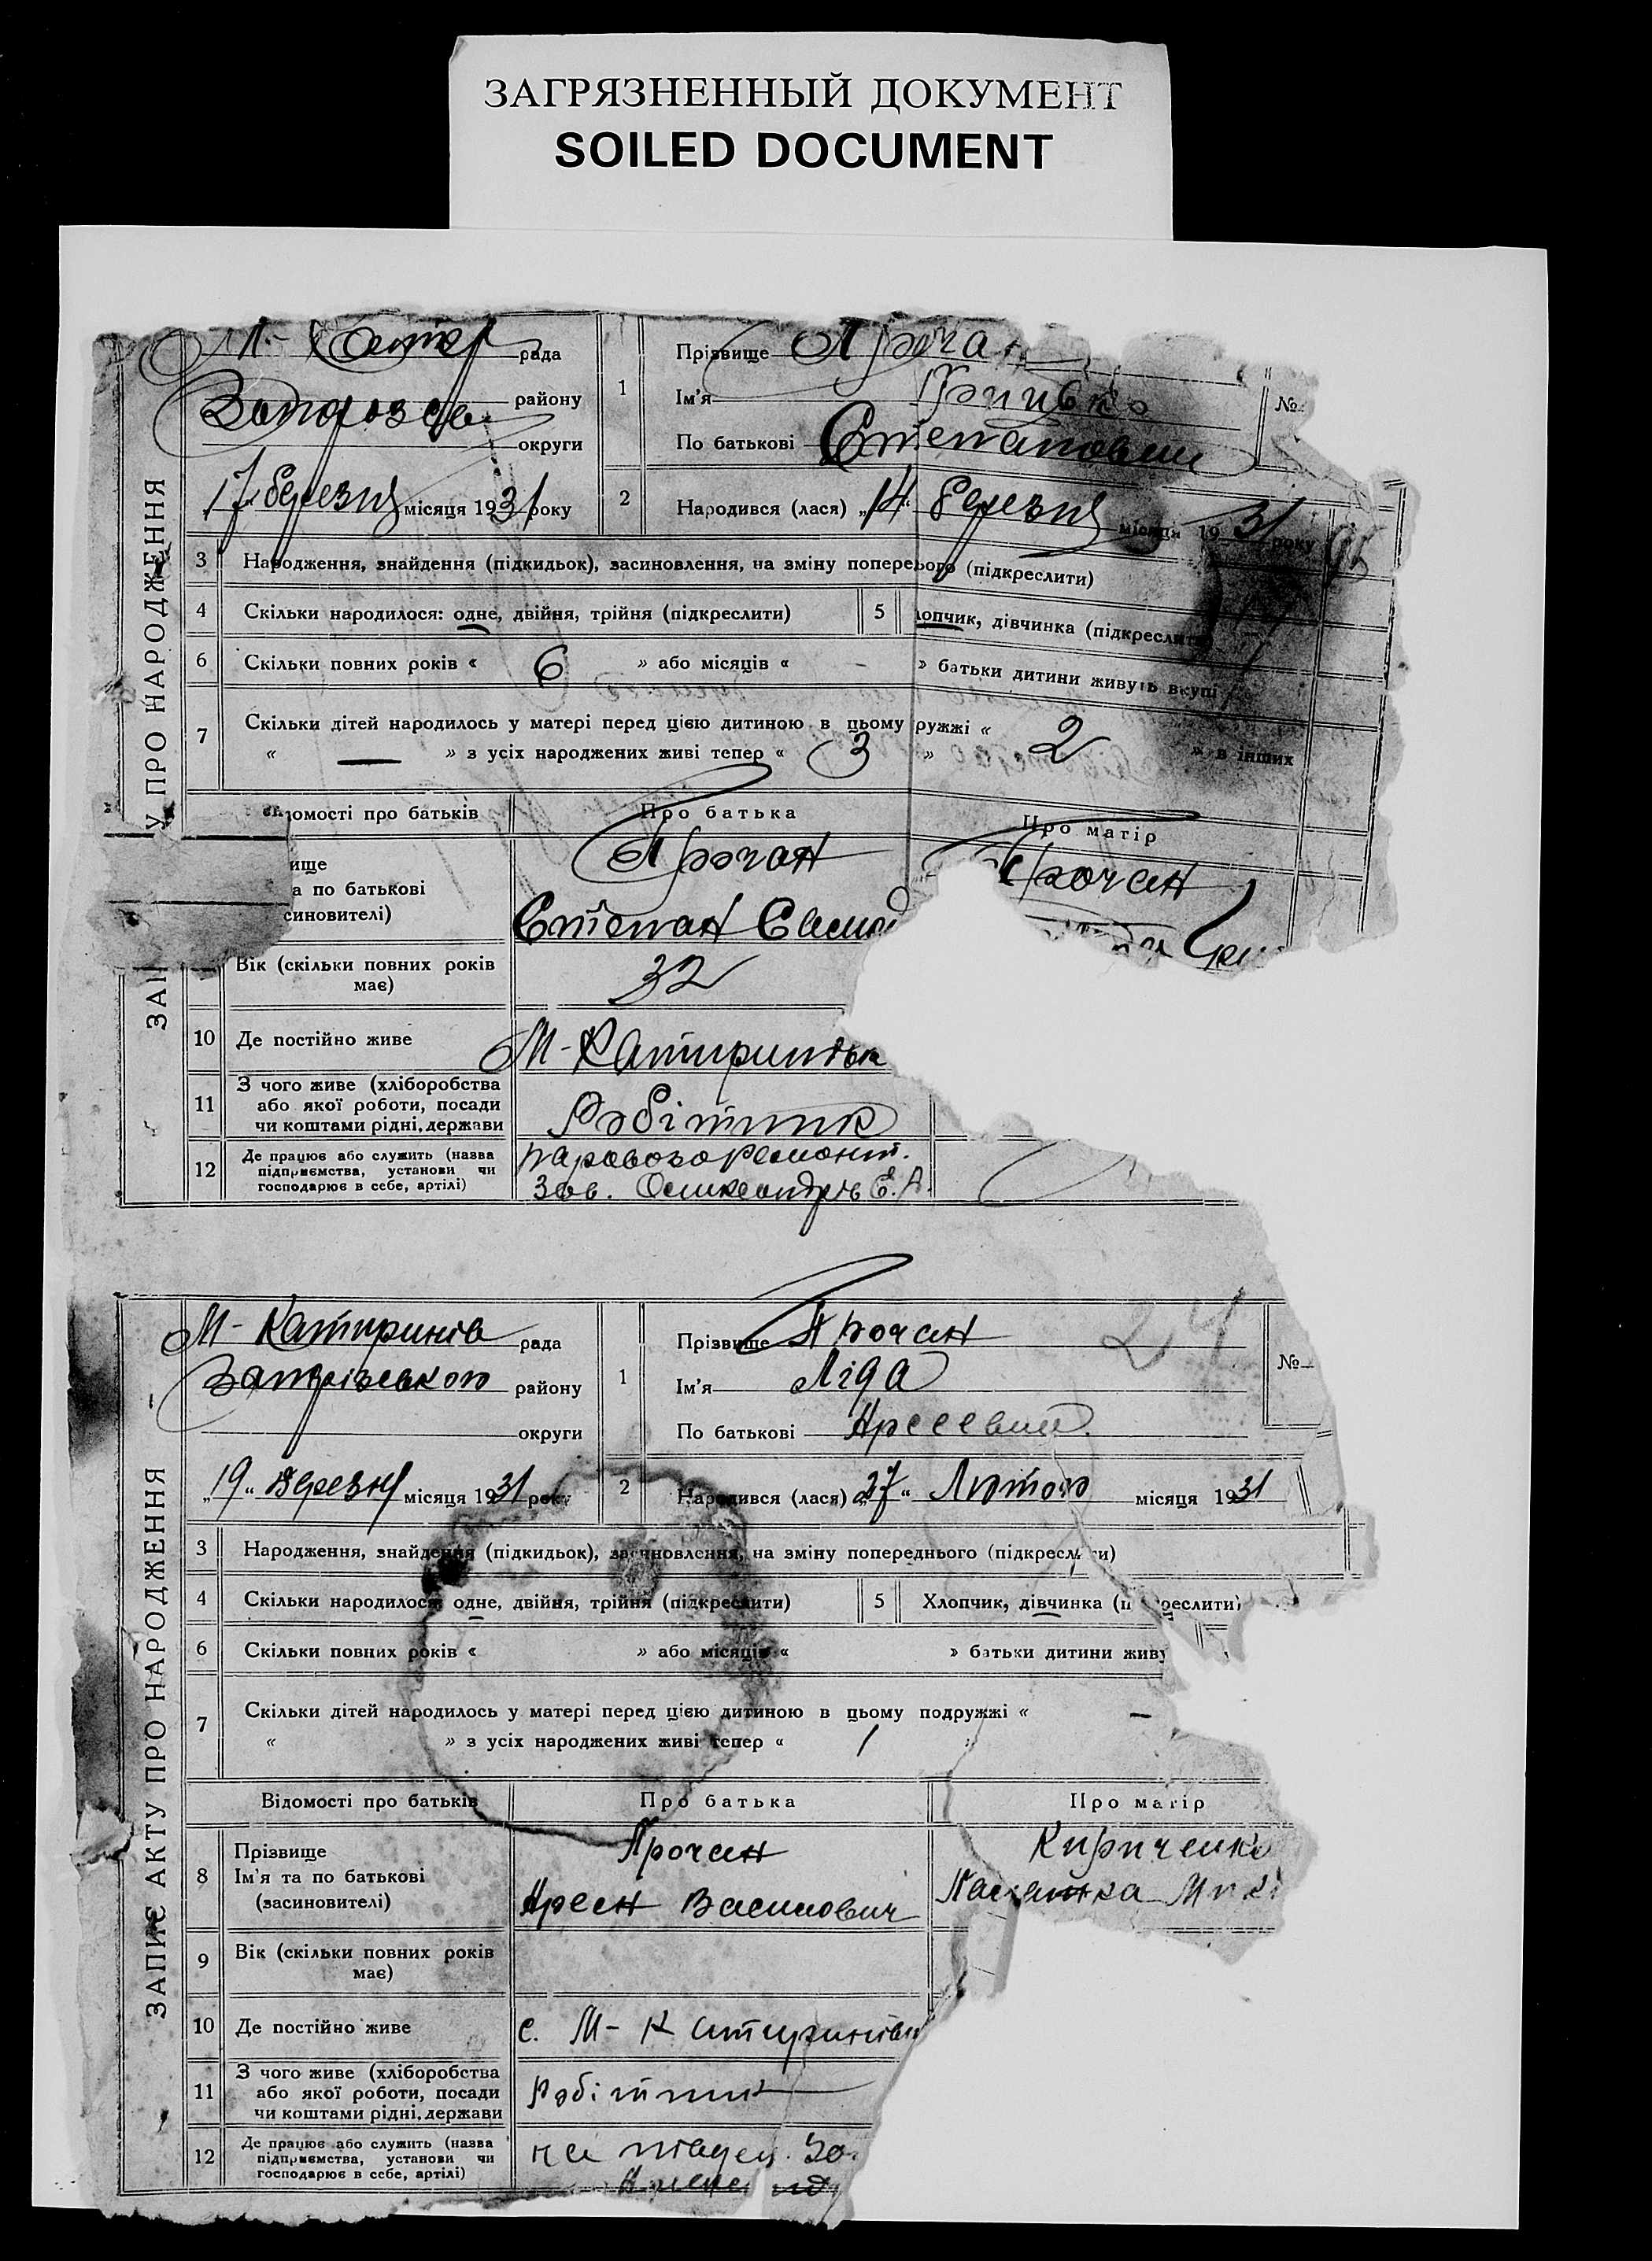 ЗАГРЯЗНЕННЫЙ ДОКУМЕНТ
SOILED DOCUMENT
У ПРО НАРОДЖЕННЯ
ЗАП
рада
району
округи
17 березня місяця 1931 року
1
Прізвище
Ім'я
По батькові Степанович
№
2
Народився (лася) „14“ березня місяця 1931 року
3 Народження, знайдення (підкидьок), засиновлення, на зміну поперε​ього (підкреслити)
4 Скільки народилося: одне, двійня, трійня (підкреслити)
5 лопчик, дівчинка (підкреслити
6 Скільки повних років « 6 » або місяців « - » батьки дитини живуть вкупі
7 Скільки дітей народилось у матері перед цією дитиною в цьому ружжі « 2 » в інших
« — » з усіх народжених живі тепер « 3 »
омості про батьків
Про батька
Про матір
ище
а по батькові
синовителі)
Прочан
Степан
Прочан
Вік (скільки повних років має)
32
10 Де постійно живе
М-Катеринівка
11 З чого живе (хліборобства
або якої роботи, посади
чи коштами рідні, держави
Робітник
12 Де працює або служить (назва
підприємства, установи чи
господарює в себе, артілі)
паровозоремонт.
зав.
ЗАПИС АКТУ ПРО НАРОДЖЕННЯ
М-Катеринів рада
району
округи
„19“ березня місяця 1931 року
24
1
Прізвище Прочан
Ім'я Ліда
По батькові
№
2
Народився (лася) „27“ Лютого місяця 1931
3 Народження, знайдення (підкидьок), засиновлення, на зміну попереднього (підкреслити)
4 Скільки народилося: одне, двійня, трійня (підкреслити)
5 Хлопчик, дівчинка (п реслити)
6 Скільки повних років « » або місяців « » батьки дитини живу
7 Скільки дітей народилось у матері перед цією дитиною в цьому подружжі « —
« » з усіх народжених живі тепер « 1
Відомості про батьків
Про батька
Про матір
8 Прізвище
Ім'я та по батькові
(засиновителі)
Прочан
Арсен Василович
Кириченко
9 Вік (скільки повних років має)
10 Де постійно живе
с. М-Катеринівка
11 З чого живе (хліборобства
або якої роботи, посади
чи коштами рідні, держави
робітник
12 Де працює або служить (назва
підприємства, установи чи
господарює в себе, артілі)
на